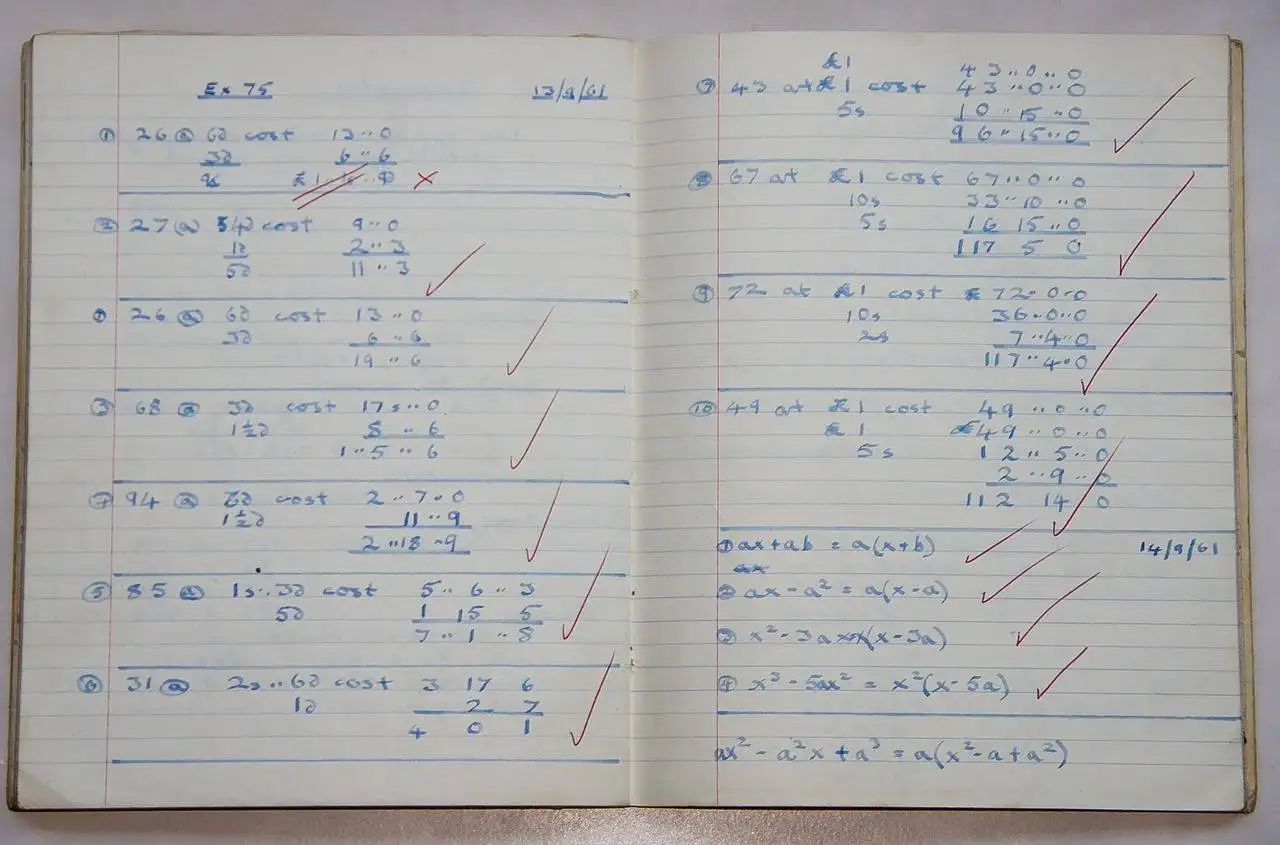 Ex 75 13/9/61
① 26 @ 6d cost 13 .. 0
3d 6 .. 6
9d
② 27 @ 4d cost 9 .. 0
1d 2 .. 3
5d 11 .. 3
26 @ 6d cost 13 .. 0
3d 6 .. 6
19 .. 6
③ 68 @ 3d cost 17s .. 0
1½d 8 .. 6
1 .. 5 .. 6
94 @ cost 2 .. 7 . 0
1½d 11 .. 9
2 .. 18 .. 9
⑤ 85 @ 1s .. 3d cost 5 .. 6 .. 3
5d 1 15 5
7 .. 1 .. 8
⑥ 31 @ 2s .. 6d cost 3 17 6
1d 2 7
4 0 1
£1 43 .. 0 .. 0
⑦ 43 at £1 cost 43 .. 0 .. 0
5s 10 .. 15 .. 0
96 .. 15 .. 0
⑧ 67 at £1 cost 67 .. 0 .. 0
10s 33 .. 10 .. 0
5s 16 15 .. 0
117 5 0
⑨ 72 at £1 cost £ 72 . 0 . 0
10s 36 . 0 . 0
2s 7 .. 4 . 0
117 .. 4 . 0
⑩ 49 at £1 cost 49 .. 0 .. 0
£1 £49 .. 0 .. 0
5s 12 .. 5 .. 0
2 .. 9 .. 0
112 14 0
① ax + ab = a(x+b) 14/9/61
ax
② ax - a² = a(x-a)
③ x² - 3ax x(x-3a)
④ x³ - 5ax² = x²(x-5a)
ax² - a²x + a³ = a(x²-a+a²)